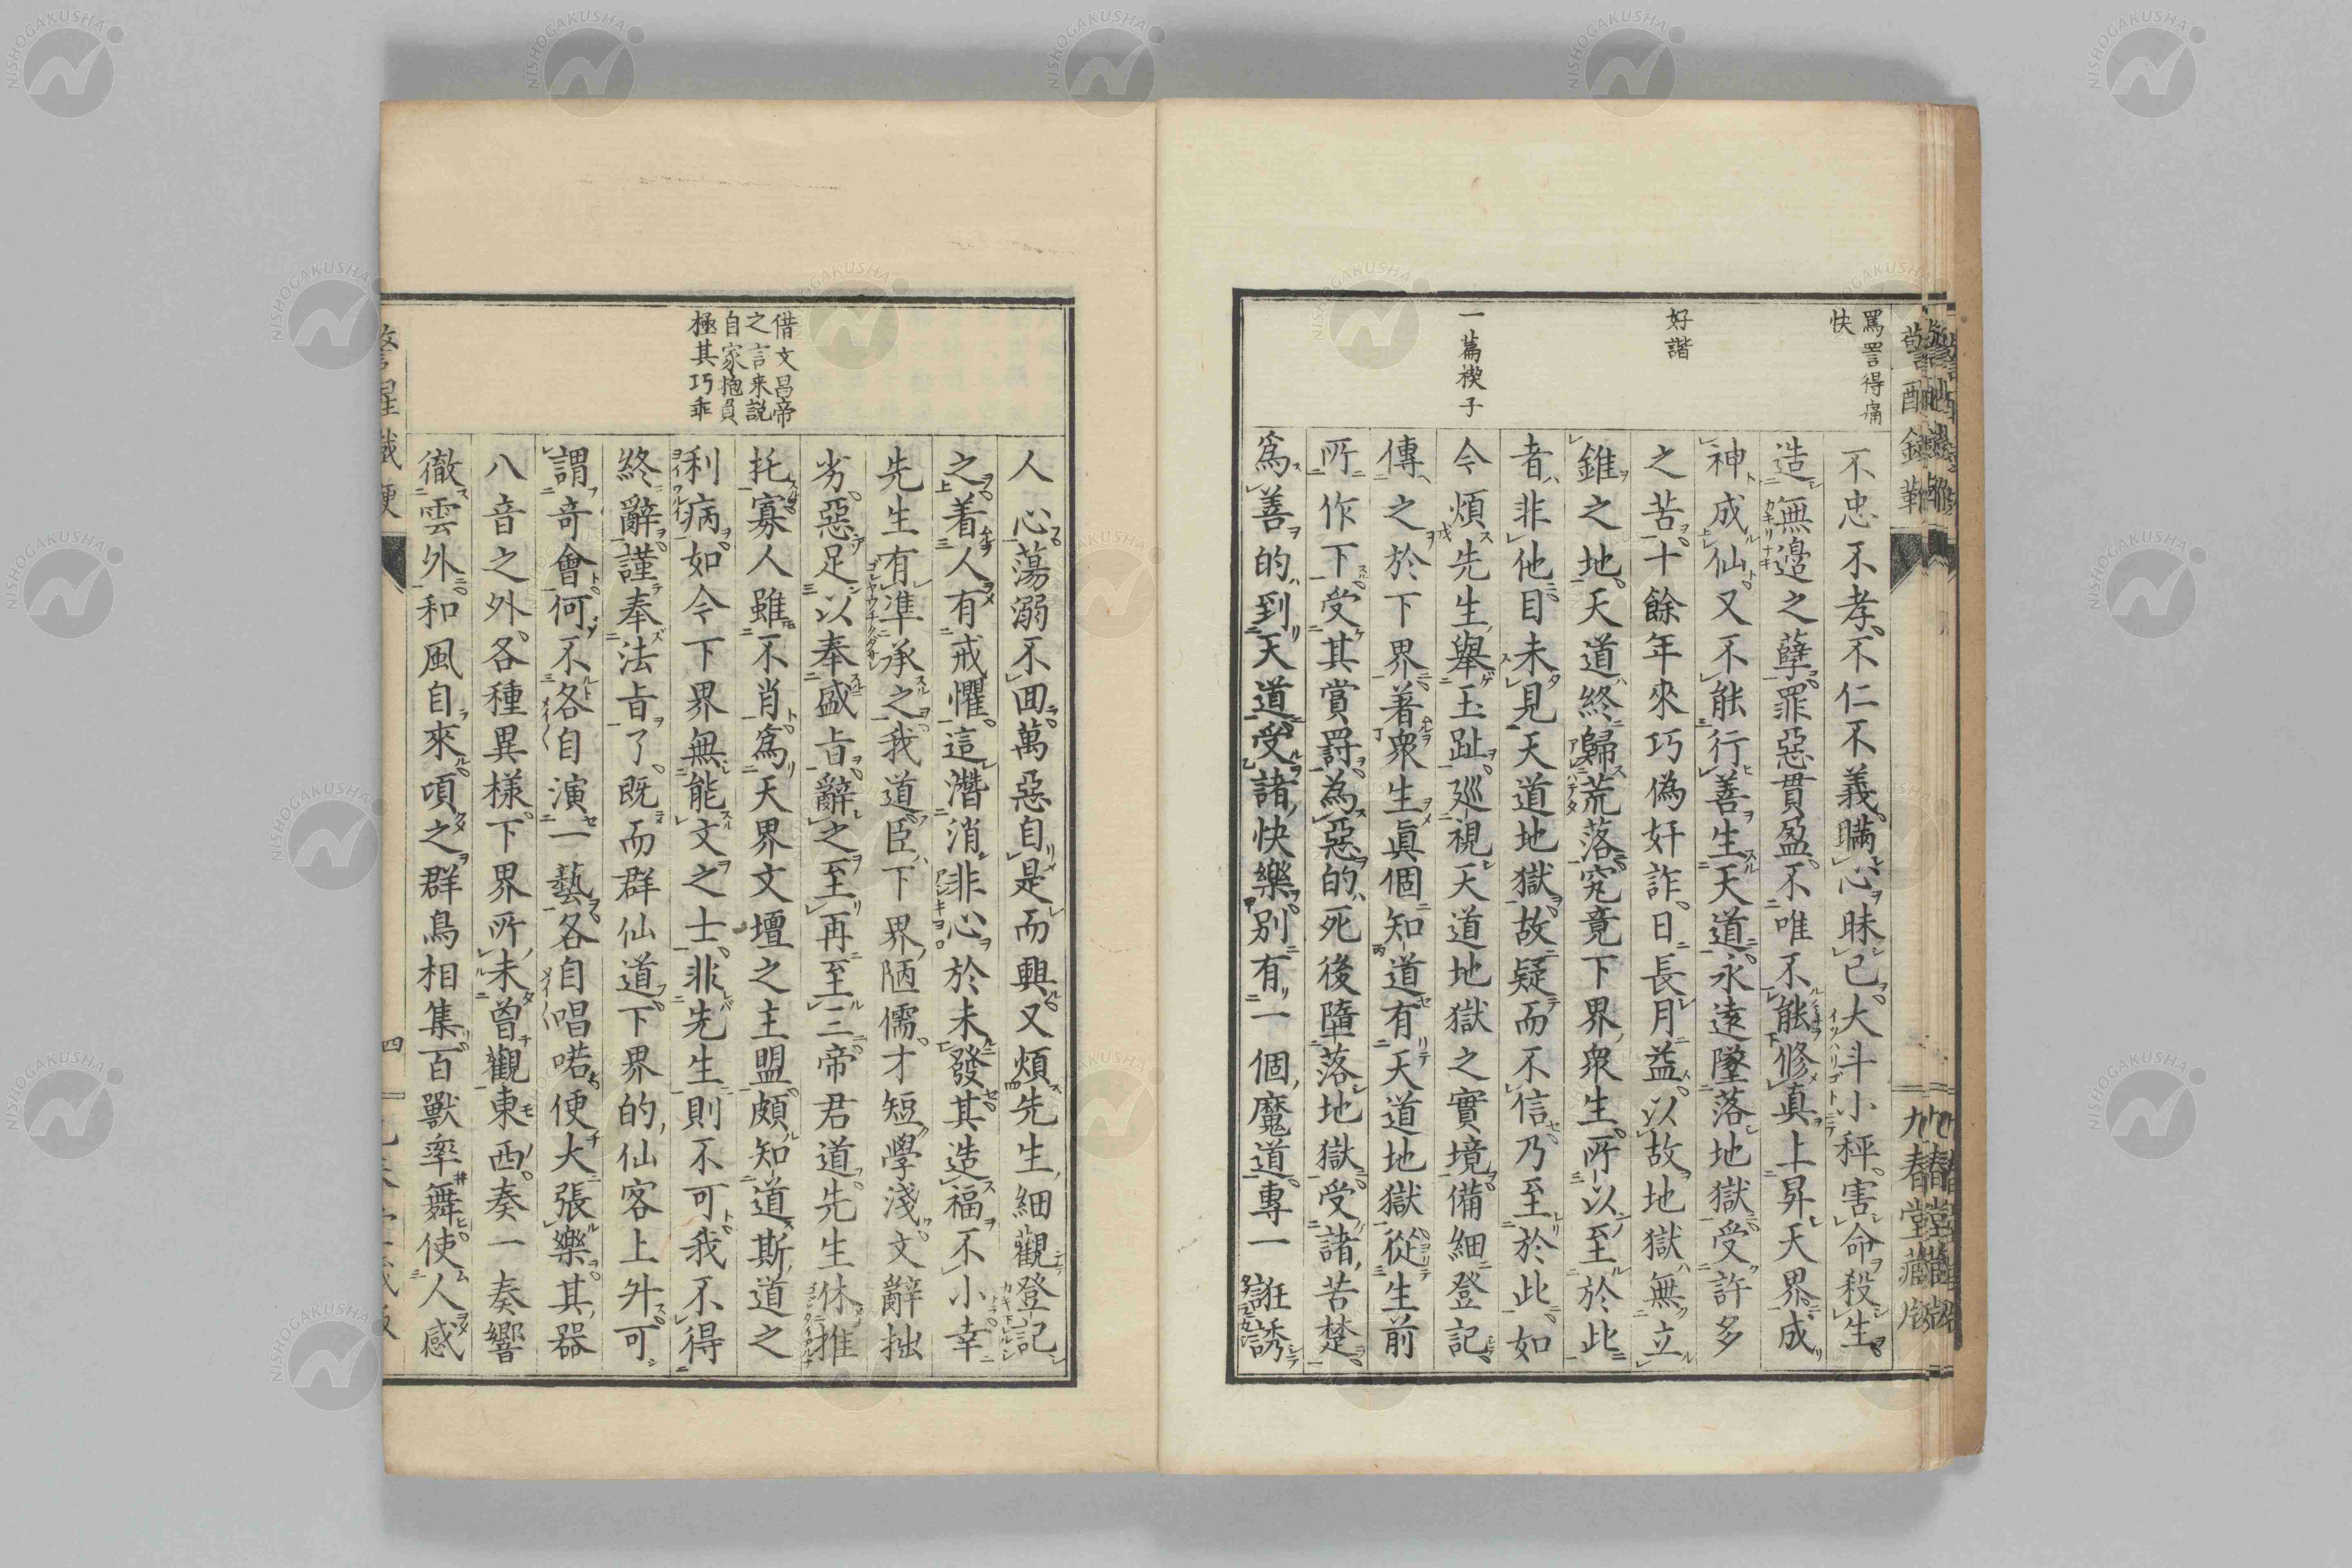 罵詈得痛
快
好諧
一篇楔子
不忠不孝不仁不義瞞心昧己大斗小秤害命殺生
造無邊之孽罪惡貫盈不唯不能修眞上昇天界成
神成仙又不能行善生天道永遠墜落地獄受許多
之苦十餘年來巧偽奸詐日長月益以故地獄無立
錐之地天道終歸荒落究竟下界衆生所以至於此
者非他目未見天道地獄故疑而不信乃至於此如
今煩先生舉玉趾廵視天道地獄之實境備細登記
傳之於下界著衆生眞個知道有天道地獄從生前
所作下受其賞罸為惡的死後墮落地獄受諸苦楚
爲善的到天道受諸快樂別有一個魔道專一誑誘
借文昌帝
之言来説
自家抱負
極其巧乖
人心蕩溺不回萬惡自是而興又煩先生細觀登記
之着人有戒懼這潛消非心於未發其造福不小幸
先生有準承之我道臣下界陋儒才短學淺文辭拙
劣惡足以奉盛旨辭之至再至三帝君道先生休推
托寡人雖不肖爲天界文壇之主盟頗知道斯道之
利病如今下界無能文之士非先生則不可我不得
終辭謹奉法旨了既而群仙道下界的仙客上升可
謂奇會何不各自演一藝各自唱喏便大張樂其器
八音之外各種異樣下界所未曾觀東西奏一奏響
徹雲外和風自來頃之群鳥相集百獸率舞使人感
四
NISHOGAKUSHA